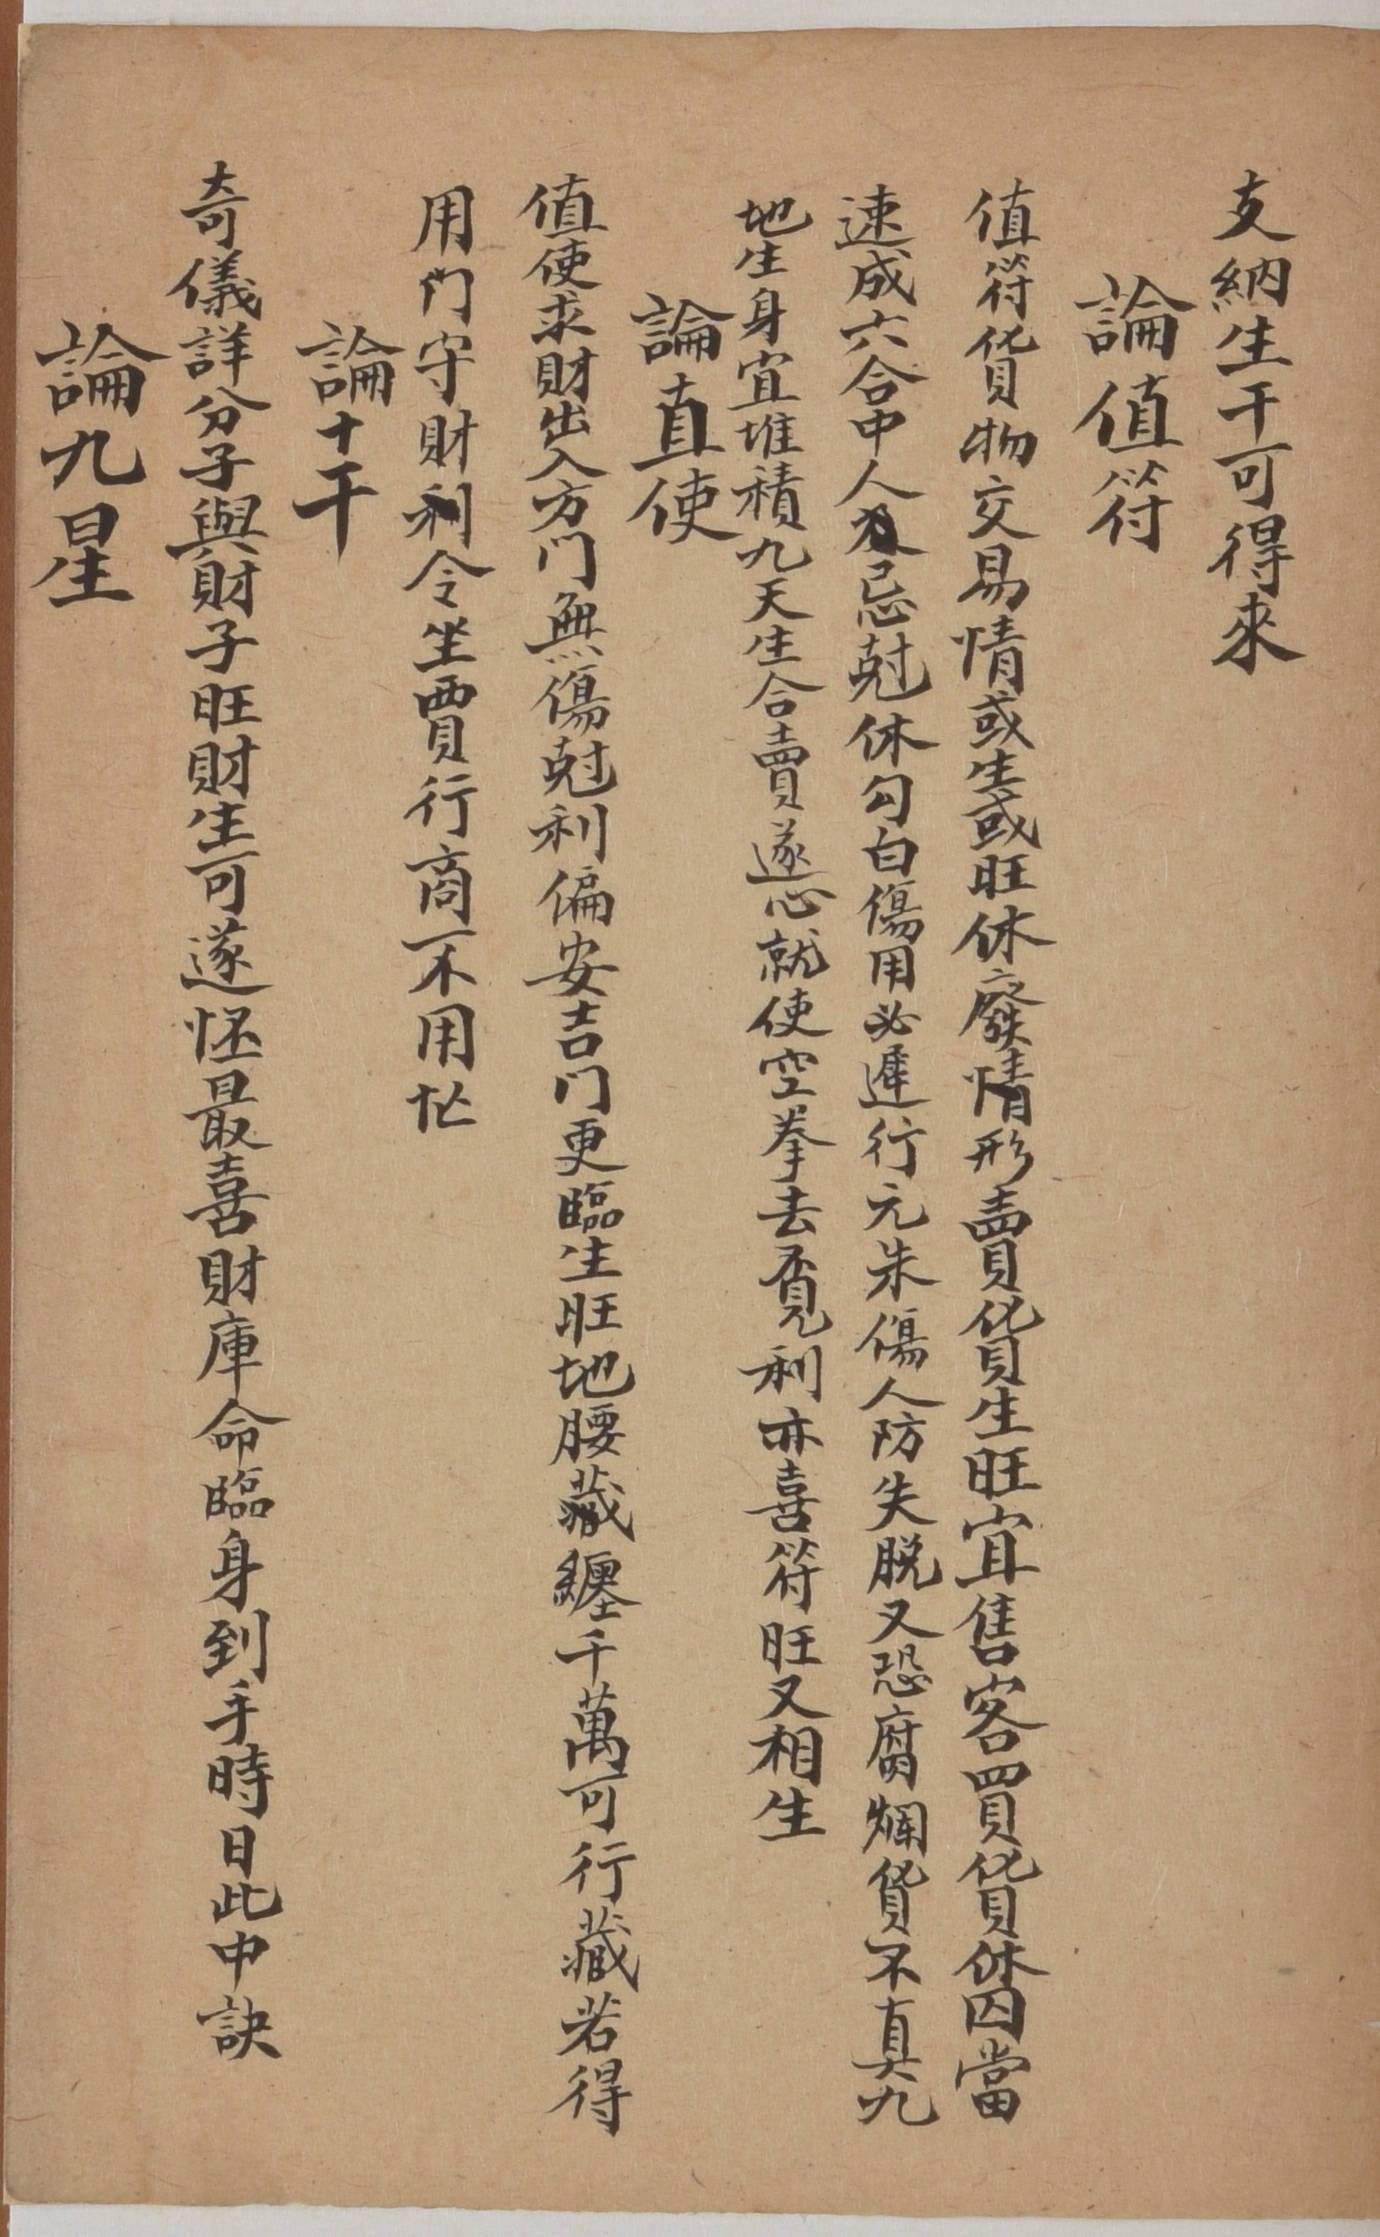 支納生干可得來
論值符
值符貨物交易情或生或旺休廢情形賣貨生旺宜售客買貨休囚當
速成六合中人忌尅休勾白傷用必遲行元朱傷人防失脫又恐腐爛貨不真九
地生身宜堆積九天生合賣遂心就使空拳去覔利亦喜符旺又相生
論直使
值使求財出入方門無傷尅利偏安吉門更臨生旺地腰藏纏千萬可行藏若得
用門守財利令坐賈行商不用忙
論十干
奇儀詳分子與財子旺財生可遂怀最喜財庫命臨身到手時日此中訣
論九星